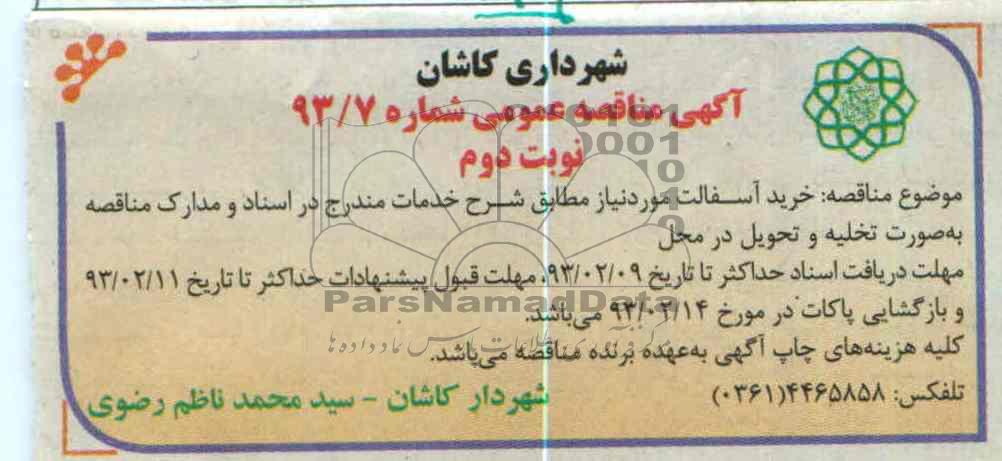 شهرداری کاشان
آگهی مناقصه عمومی شماره ۹۳/۷
نوبت دوم
موضوع مناقصه: خرید آسفالت موردنیاز مطابق شرح خدمات مندرج در اسناد و مدارک مناقصه
به‌صورت تخلیه و تحویل در محل
مهلت دریافت اسناد حداکثر تا تاریخ ۹۳/۰۲/۰۹، مهلت قبول پیشنهادات حداکثر تا تاریخ ۹۳/۰۲/۱۱
و بازگشایی پاکات در مورخ ۹۳/۰۲/۱۴ می‌باشد.
ParsNamadData
کلیه هزینه‌های چاپ آگهی به‌عهده برنده مناقصه می‌باشد.
تلفکس: ۴۴۶۵۸۵۸(۰۳۶۱)
شهردار کاشان - سید محمد ناظم رضوی